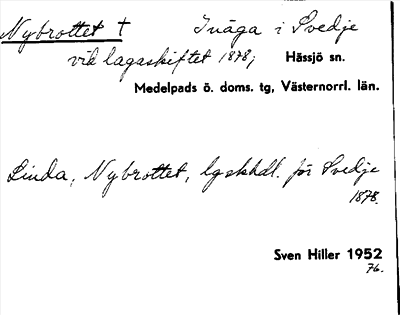 Nybrottet † Inäga i Svedje
vid lagaskiftet 1878; Hässjö sn.
Medelpads ö. doms. tg, Västernorrl. län.
Linda, Nybrottet, lgskhdl. för Svedje
1878.
Sven Hiller 1952
76.